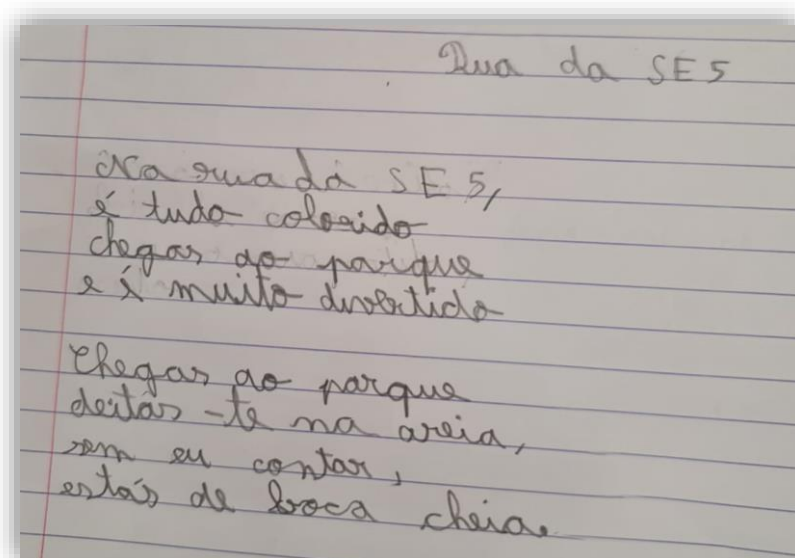 Rua da SE5
Na rua da SE5,
é tudo colorido
chegas ao parque
e é muito divertido
Chegas ao parque
deitas-te na areia,
sem eu contar,
estás de boca cheia.